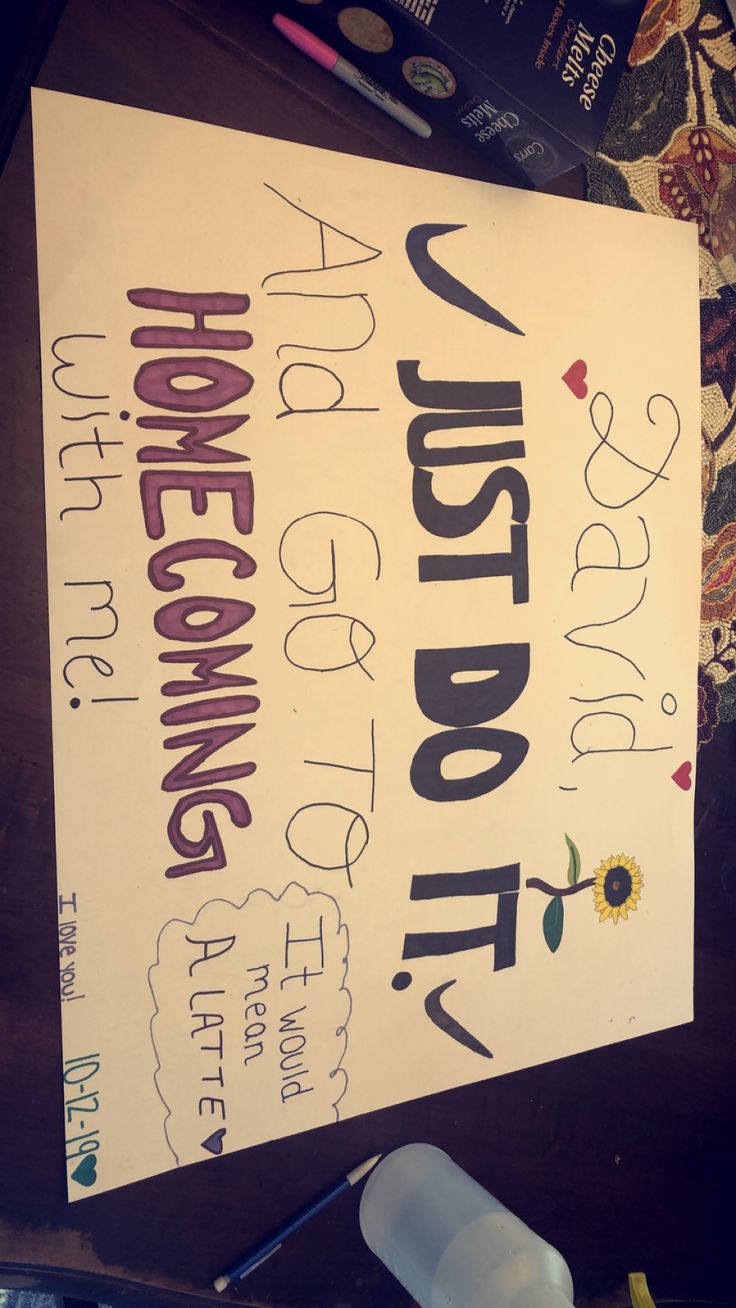 David,
JUST DO IT.
And GO TO
HOMECOMING
with me!
It would
mean
A LATTE
I love you!
10-12-19
Cheese
Melts
Crackers
4 Boxes Inside
Carr's
Cheese
Melts
Sharpie